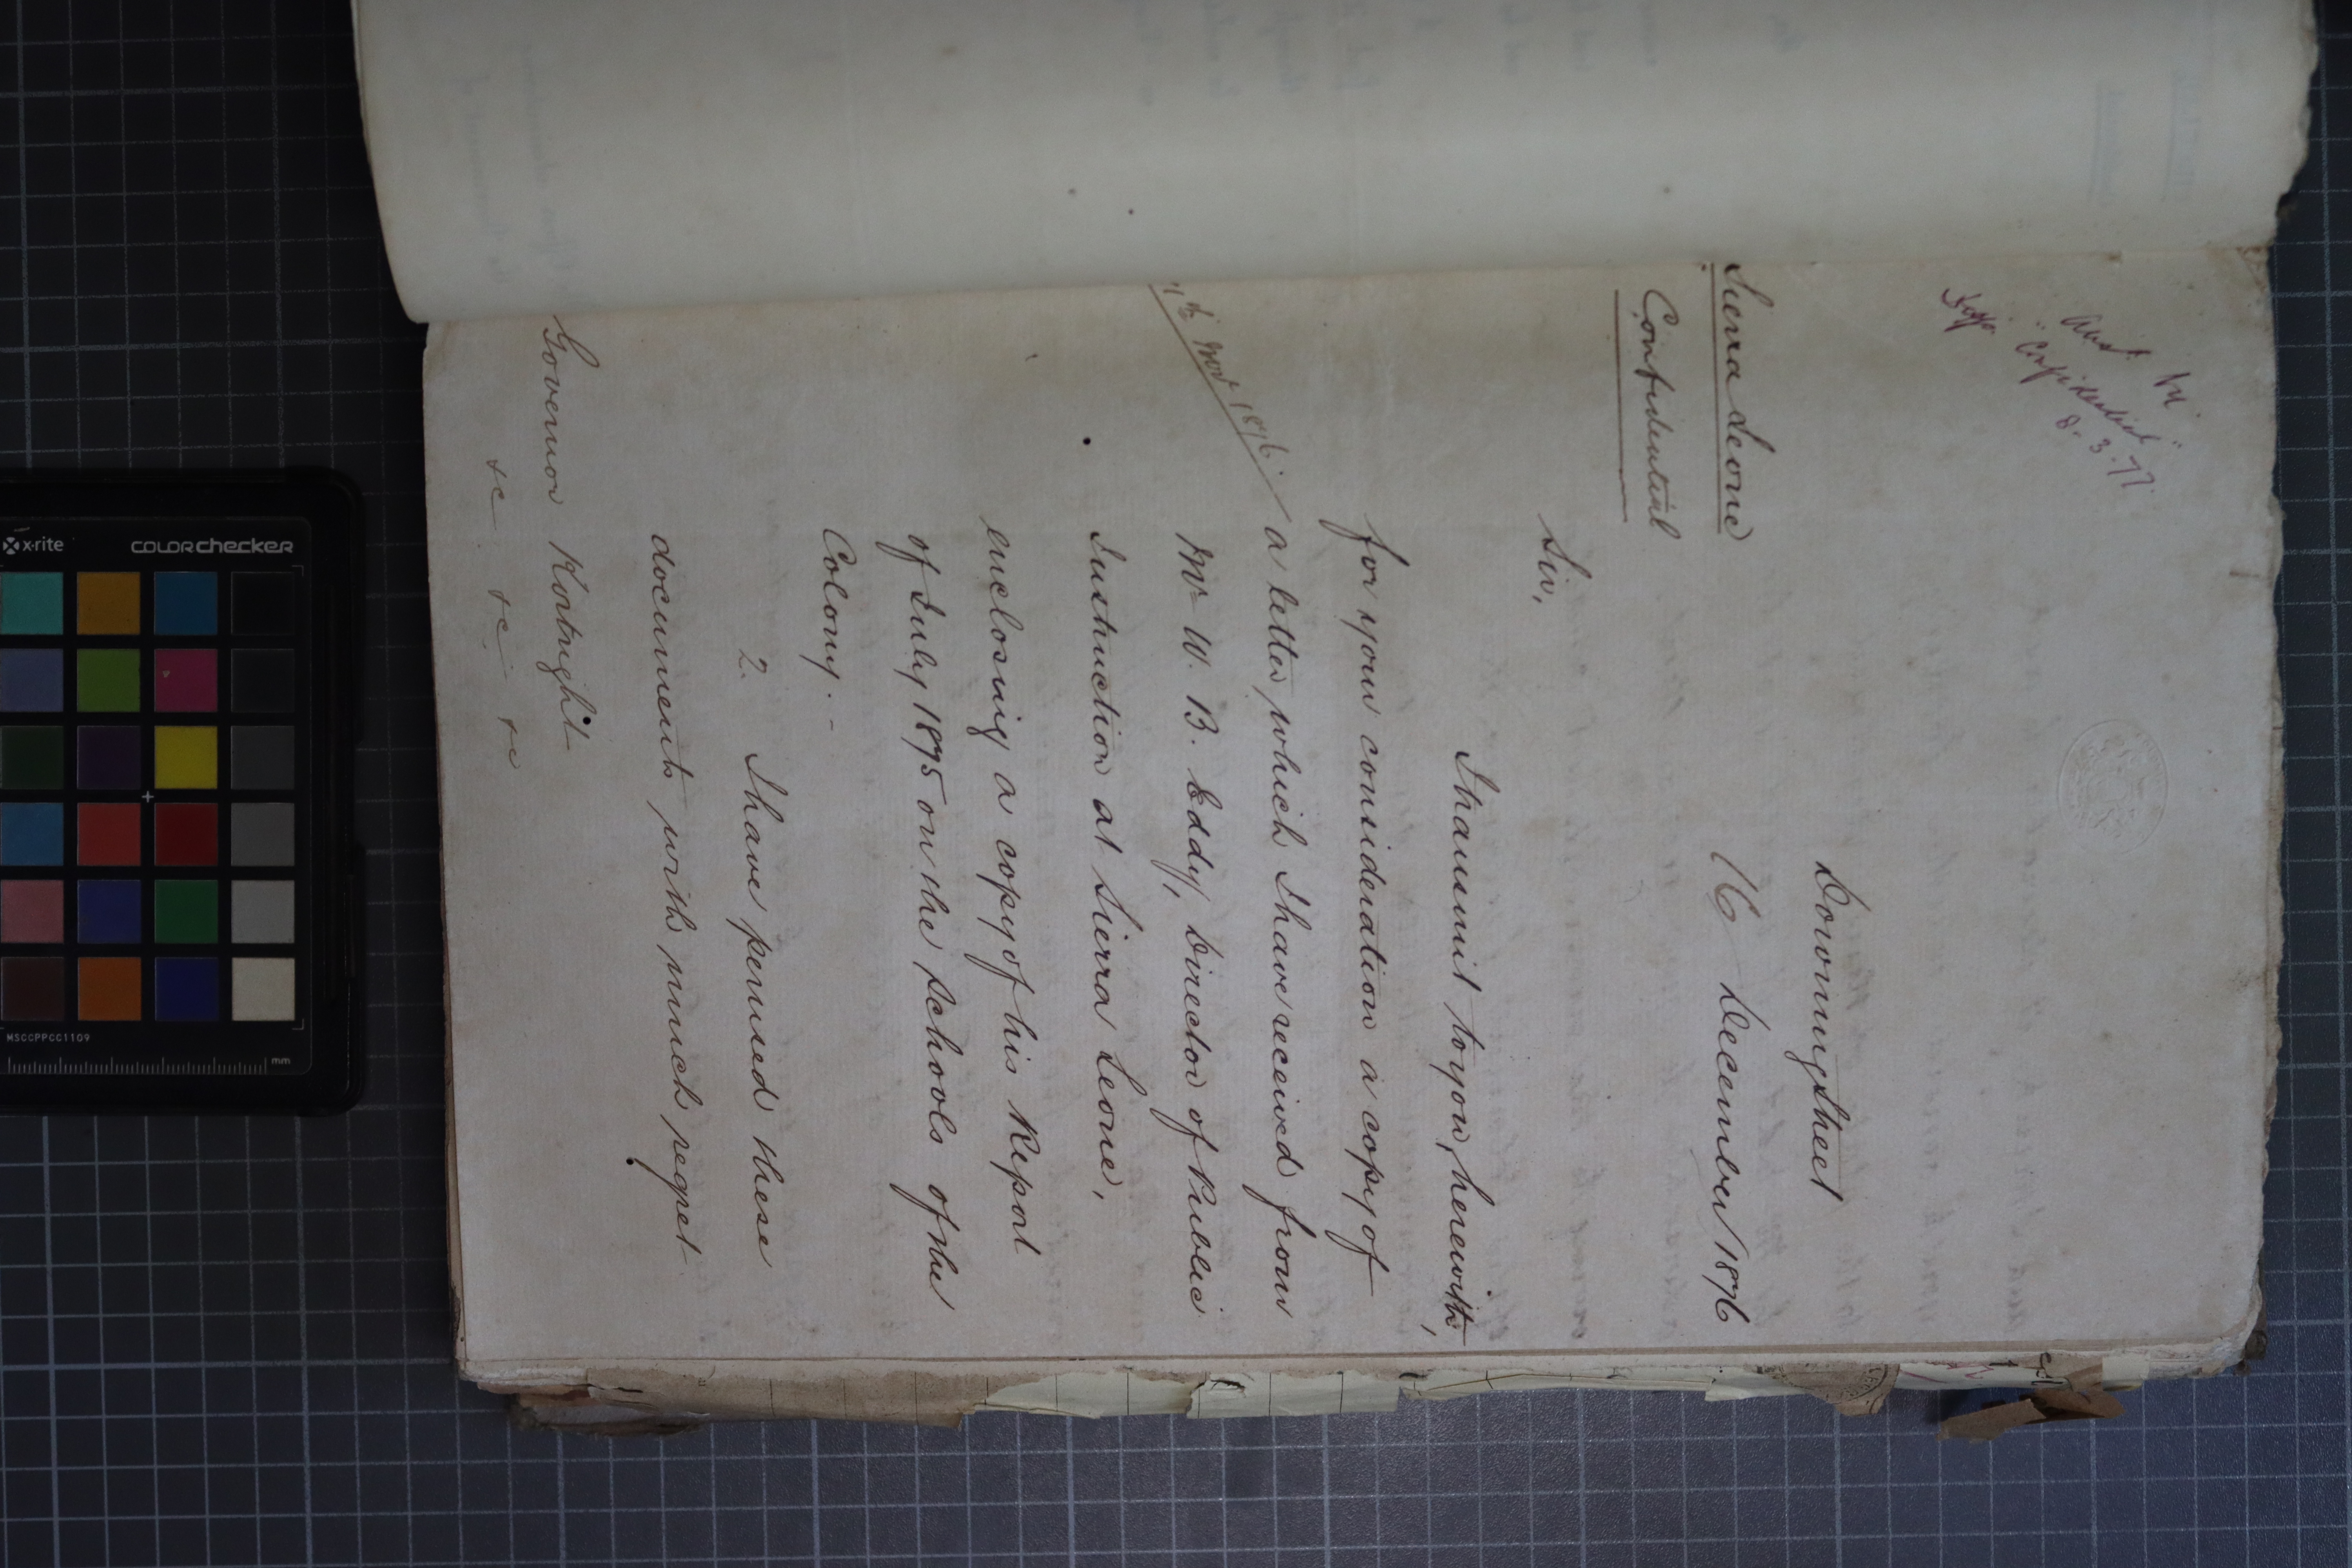 Ansd. 
"Confidential"
8.3.77.
Downing Street
16 December 1876
Sierra Leone
Confidential
Sir,
I transmit to you, herewith,
for your consideration a copy of
a letter which I have received from
Nov 1876.
Mr W. B. Eddy, Director of Public
Instruction at Sierra Leone,
enclosing a copy of his Report
of July 1875 on the Schools of the
Colony. -
2. I have perused these
documents with much regret
Governor Kortright
&c &c &c
x-rite colorchecker
MSCCPPCC1109
mm